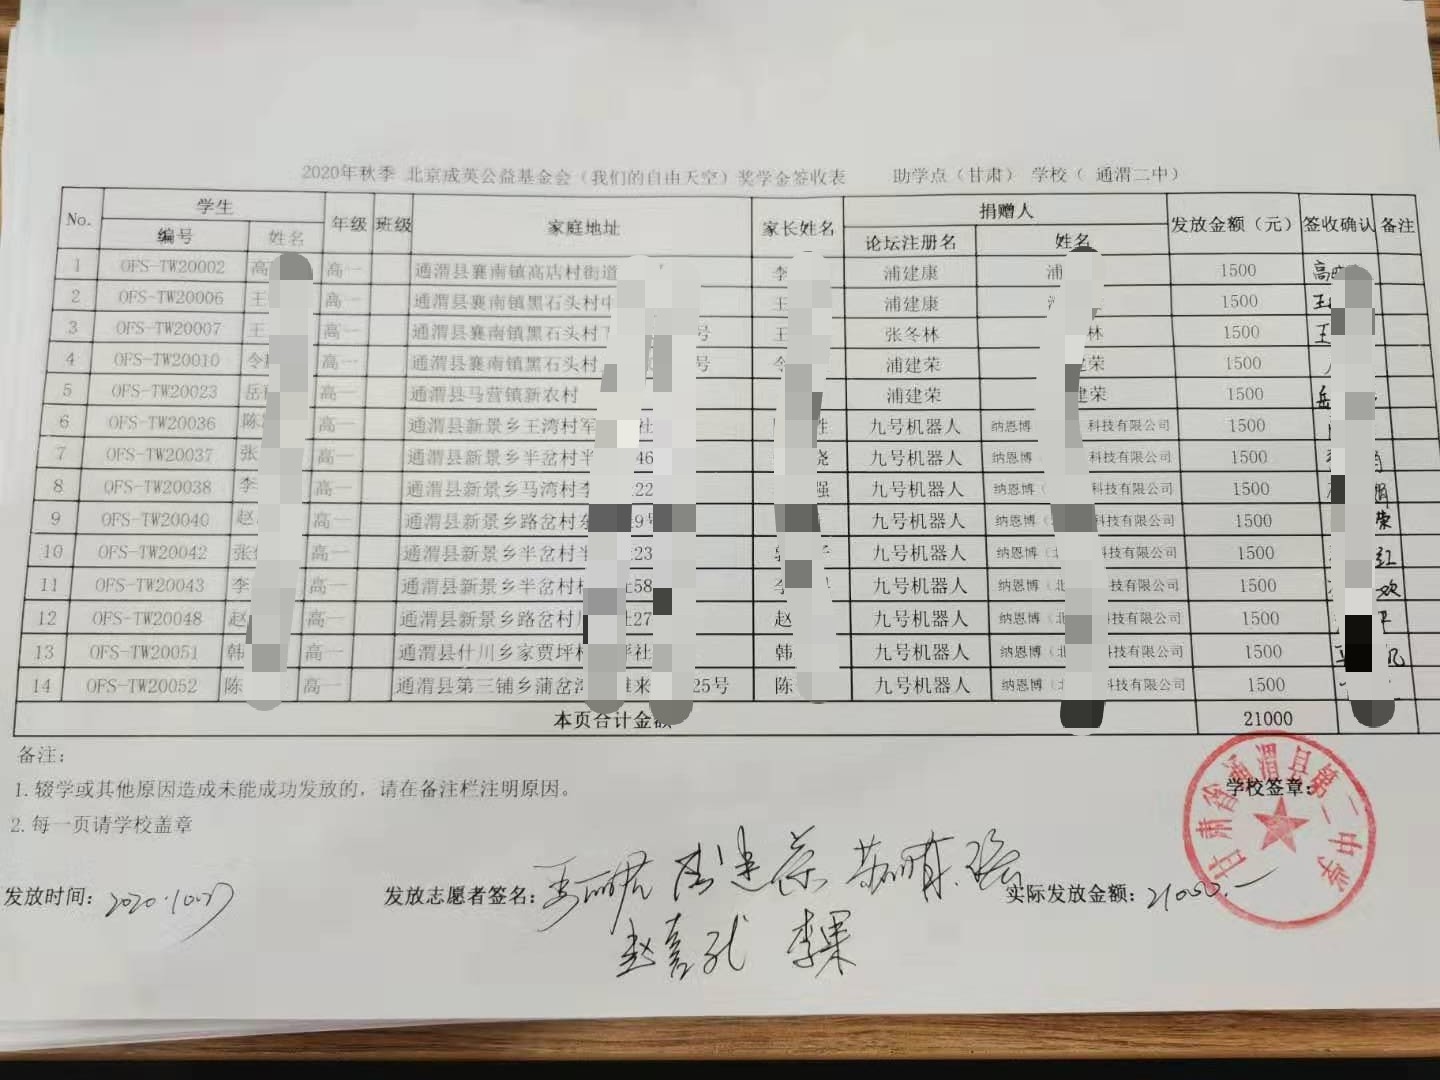 2020年秋季 北京成英公益基金会（我们的自由天空）奖学金签收表 助学点（甘肃） 学校（ 通渭二中）
No. 学生 年级 班级 家庭地址 家长姓名 捐赠人 发放金额（元） 签收确认 备注
编号 姓名 论坛注册名 姓名
1 OFS-TW20002 高 高一 通渭县襄南镇高店村街道 李 浦建康 浦 1500 高
2 OFS-TW20006 王 高一 通渭县襄南镇黑石头村 王 浦建康 1500 王
3 OFS-TW20007 王 高一 通渭县襄南镇黑石头村 号 王 张冬林 林 1500 王
4 OFS-TW20010 令 高一 通渭县襄南镇黑石头村 号 令 浦建荣 荣 1500
5 OFS-TW20023 岳 高一 通渭县马营镇新农村 浦建荣 建荣 1500 岳
6 OFS-TW20036 陈 高一 通渭县新景乡王湾村军 社 胜 九号机器人 纳恩博 科技有限公司 1500
7 OFS-TW20037 张 高一 通渭县新景乡半岔村半 46 晓 九号机器人 纳恩博 科技有限公司 1500
8 OFS-TW20038 李 高一 通渭县新景乡马湾村李 22 强 九号机器人 纳恩博（ 科技有限公司 1500
9 OFS-TW20040 赵 高一 通渭县新景乡路岔村东 9号 九号机器人 纳恩博（ 科技有限公司 1500 荣
10 OFS-TW20042 张 高一 通渭县新景乡半岔村半 23 郭 子 九号机器人 纳恩博（北 科技有限公司 1500 红
11 OFS-TW20043 李 高一 通渭县新景乡半岔村 社58 李 九号机器人 纳恩博（北 科技有限公司 1500 欢
12 OFS-TW20048 赵 高一 通渭县新景乡路岔村 社27 赵 九号机器人 纳恩博（北 科技有限公司 1500 卫
13 OFS-TW20051 韩 高一 通渭县什川乡家贾坪村 坪社 韩 九号机器人 纳恩博（北 科技有限公司 1500
14 OFS-TW20052 陈 高一 通渭县第三铺乡蒲岔 25号 陈 九号机器人 纳恩博（北 科技有限公司 1500
本页合计金额 21000
备注：
1. 辍学或其他原因造成未能成功发放的，请在备注栏注明原因。
2. 每一页请学校盖章
学校签章：
甘肃省通渭县第二中学
发放时间：2020.10.27 发放志愿者签名： 实际发放金额：21000.—
李果